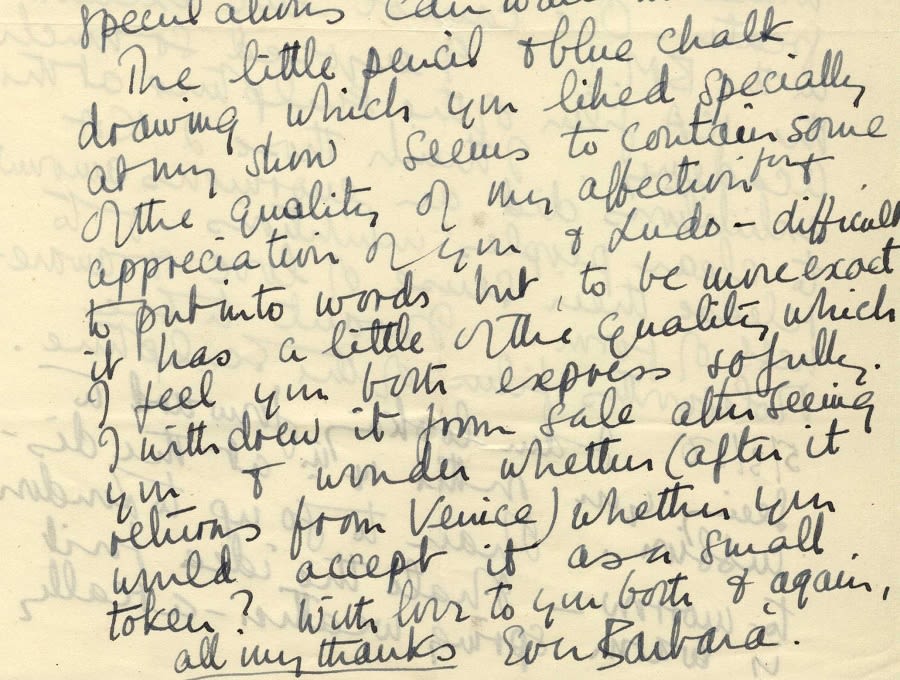 speculations can wait
The little pencil & blue chalk
drawing which you liked specially
at my show seems to contain some
of the quality of my affection for &
appreciation of you & Ludo - difficult
to put into words but, to be more exact
it has a little of the quality which
I feel you both express so fully.
I withdrew it from sale after seeing
you & wonder whether (after it
returns from Venice) whether you
would accept it as a small
token? With love to you both & again,
all my thanks Ever Barbara.